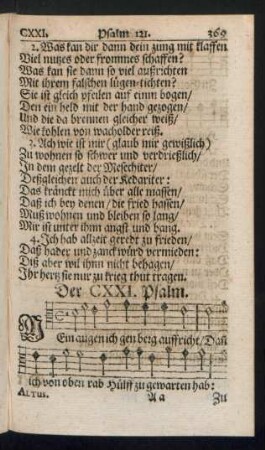 CXXI. Psalm 121. 369
2. Was kan dir dann dein zung mit klaffen
Viel nutzes oder frommes schaffen?
Was kan sie dann so viel außrichten
Mit ihrem falschen lügen-tichten?
Sie ist gleich pfeilen auf einm bogen/
Den ein held mit der hand gezogen/
Und die da brennen gleicher weiß/
Wie kohlen von wacholder reiß.
3. Ach wie ist mir (glaub mir gewißlich)
Zu wohnen so schwer und verdrießlich/
In dem gezelt der Mesechiter/
Deßgleichen auch der Kedariter:
Das kränckt mich über alle massen/
Daß ich bey denen/ die fried hassen/
Muß wohnen und bleiben so lang/
Mir ist unter ihm angst und bang.
4. Ich hab allzeit geredt zu frieden/
Daß hader und zanck würd vermieden:
Diß aber wil ihnn nicht behagen/
Ihr hertz sie nur zu krieg thut tragen.
Der CXXI. Psalm.
MEin augen ich gen berg auffricht/ Daß
ich von oben rab Hülff zu gewarten hab:
ALTUS. A a Zu